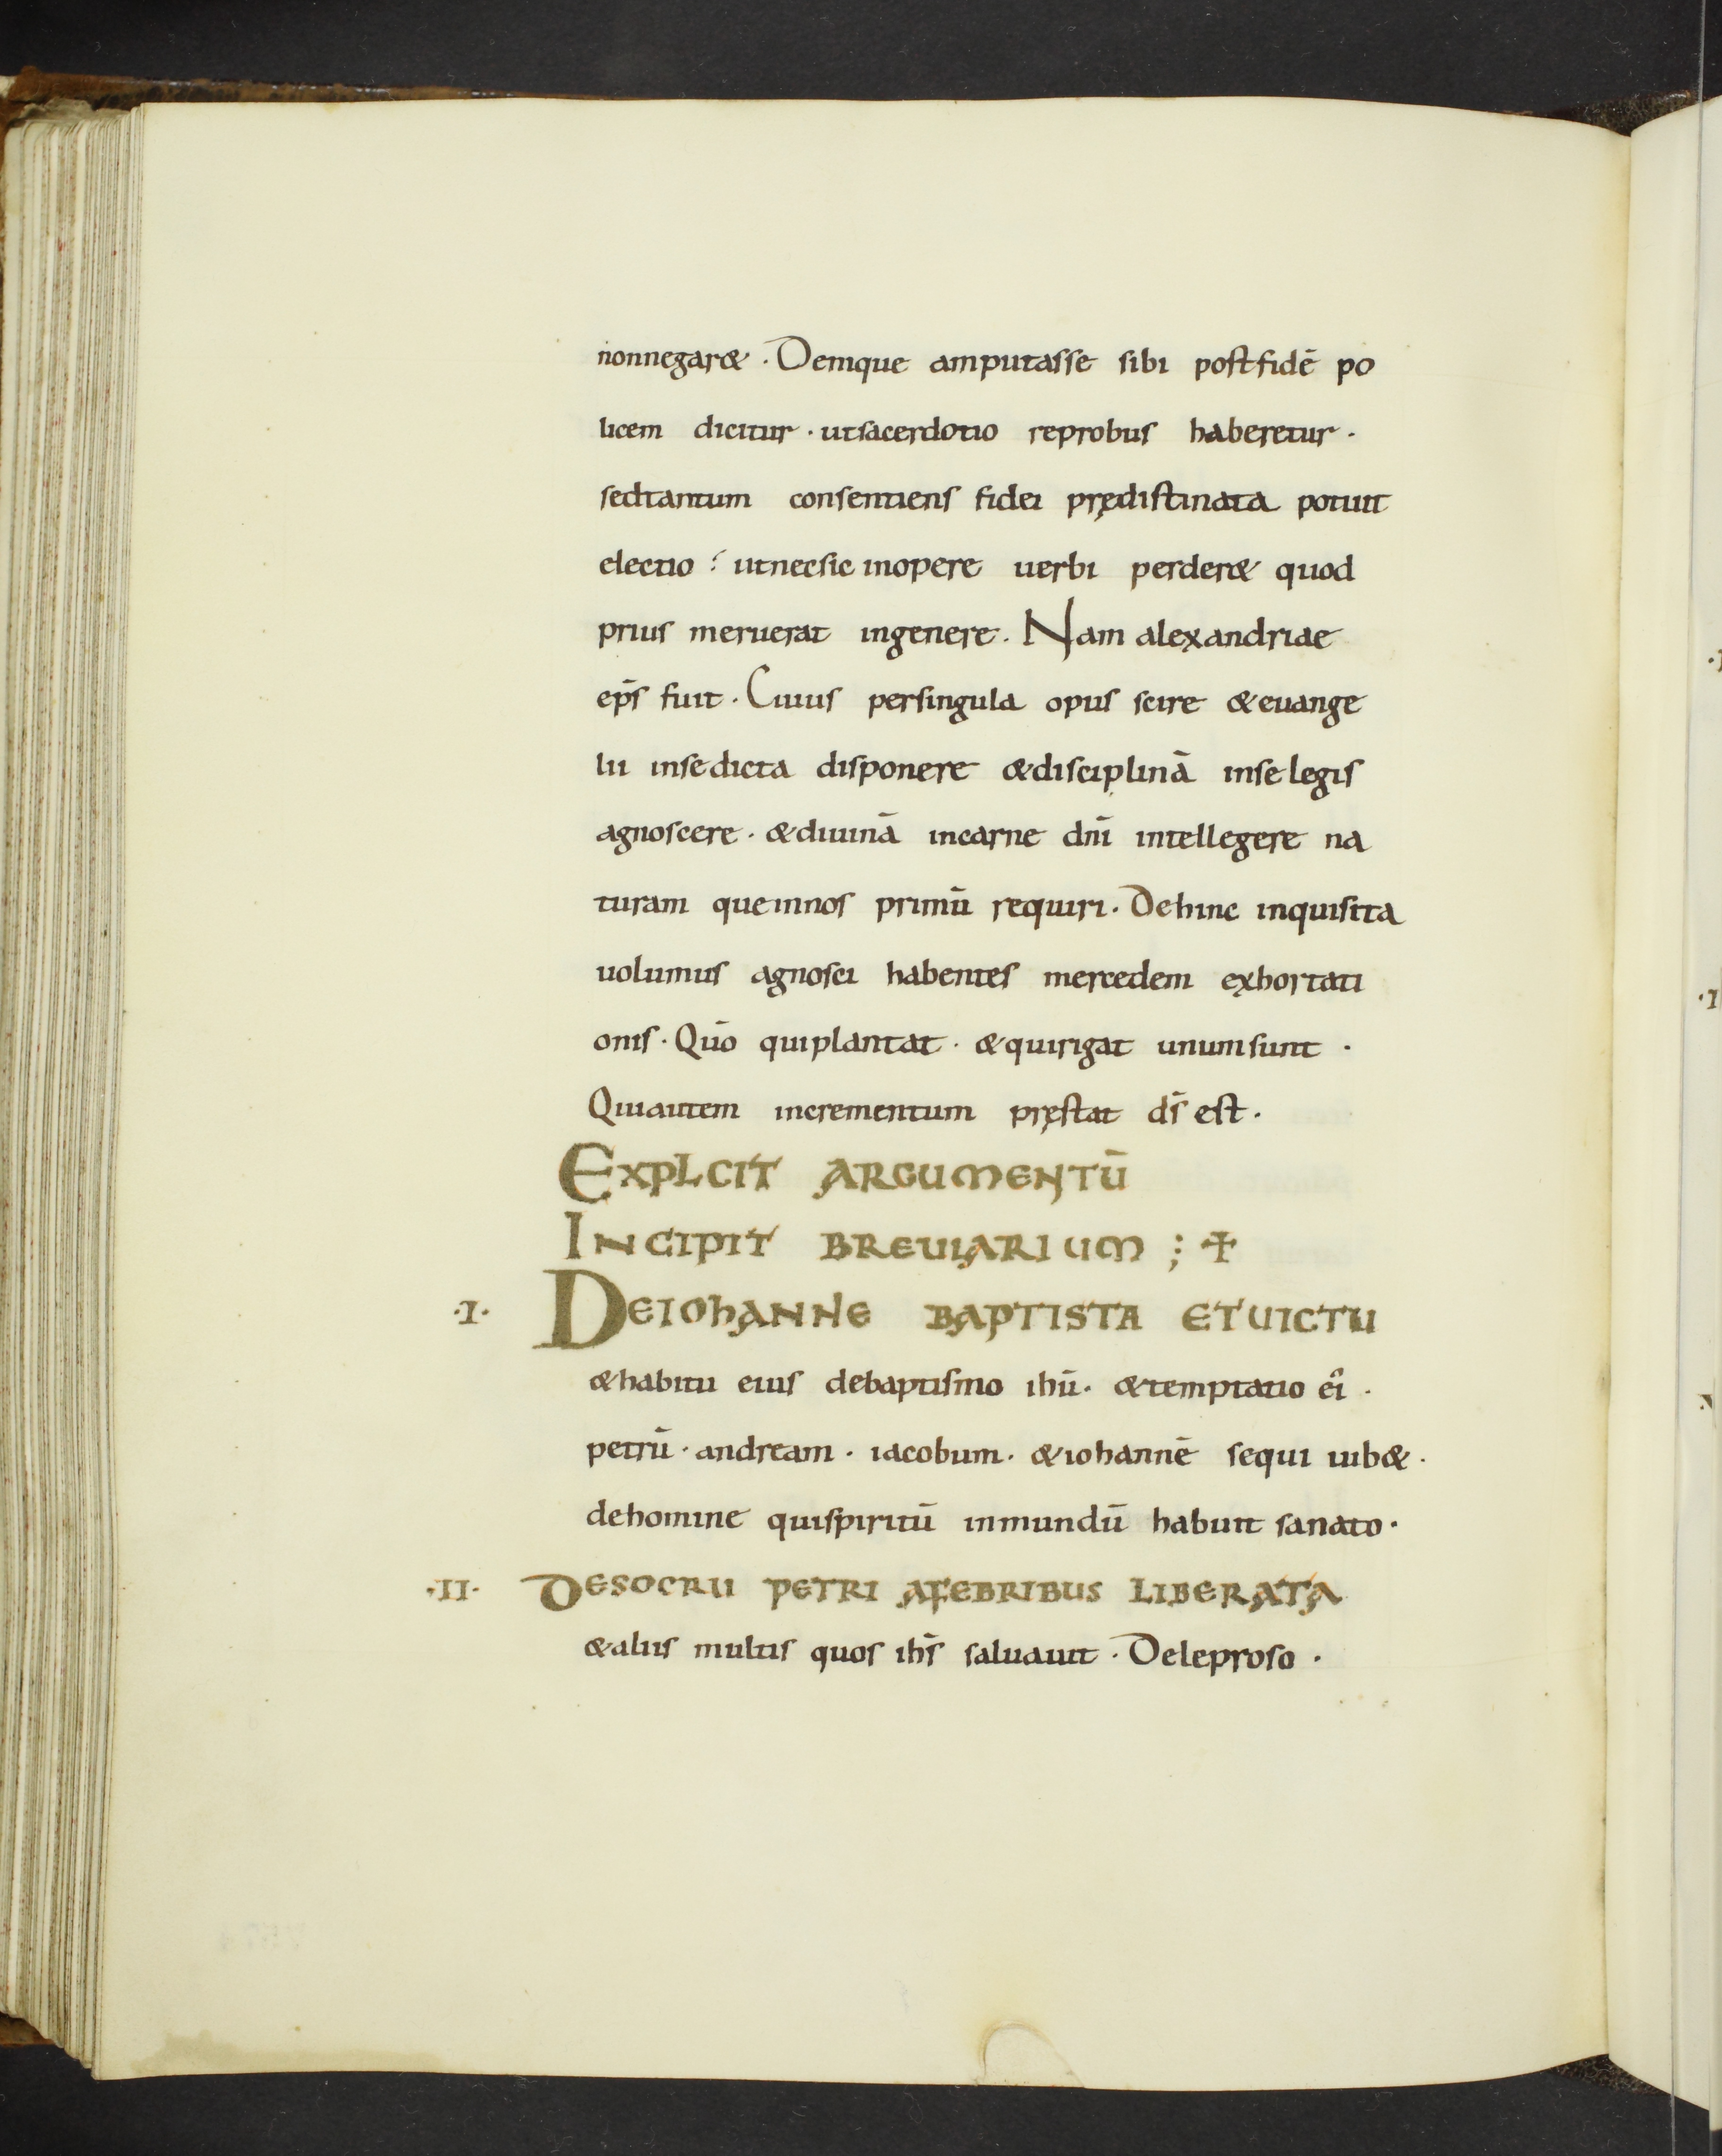 nonnegar& · Denique amputasse sibi postfidē po
licem dicitur · utsacerdotio reprobus haberetur ·
sedtantum consentiens fidei prędistinata potuit
electio ⁖ utnecsic inopere uerbi perder& quod
prius meruerat ingenere. Nam alexandriae
ep̄s fuit · Cuius persingula opus scire &euange
lii insedicta disponere &disciplinā inselegis
agnoscere · &diuinā incarne dn̄i intellegere na
turam queinnos primū requiri · Dehinc inquisita
uolumus agnosci habentes mercedem exhortati
onis · Quō quiplantat · &quirigat unumsunt ·
Quiautem incrementum pręstat ds̄ est ·
EXPLCIT ARGUMENTŪ
INCIPIT BREUIARIUM ; ✝
·I· DEIOHANNE BAPTISTA ETUICTU
&habitu eius debaptismo ihū · &temptatio ei ·
petrū · andream · iacobum · &iohannē sequi iub& ·
dehomine quispiritū inmundū habuit sanato ·
·II· DESOCRU PETRI AFEBRIBUS LIBERATA
&aliis multis quos ihs̄ saluauit · Deleproso ·